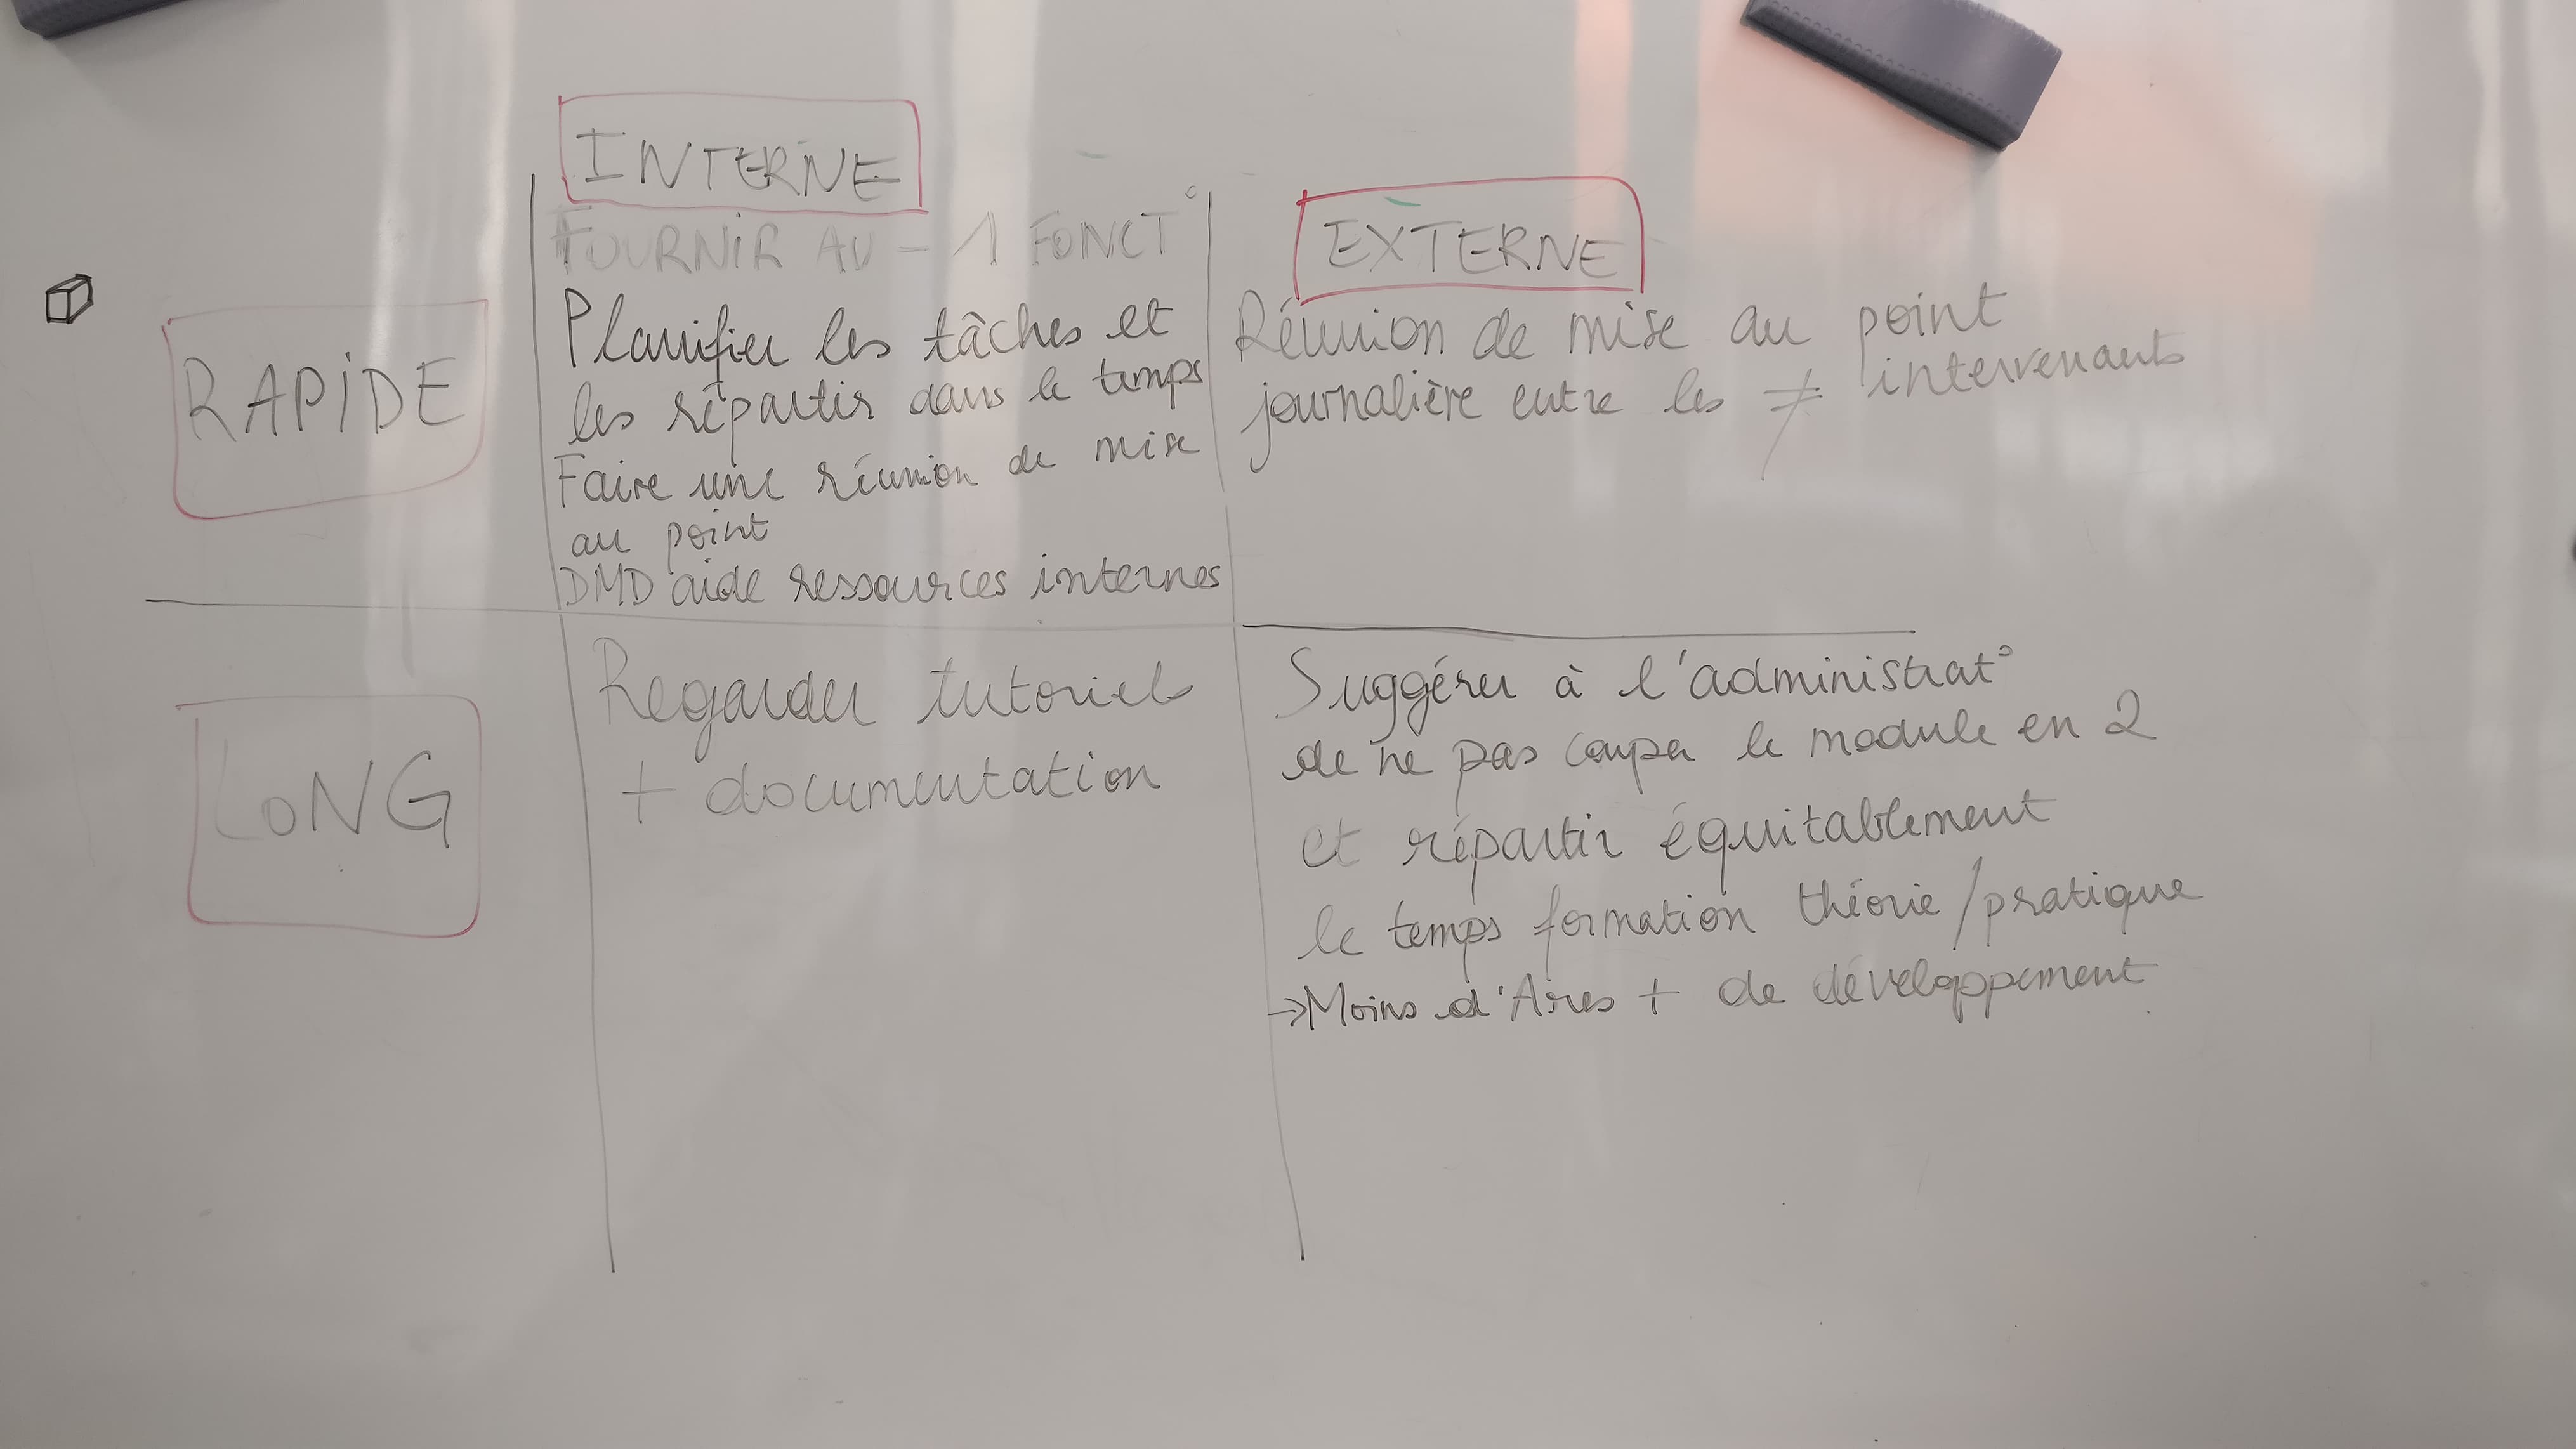 INTERNE
FOURNIR AU - 1 FONCT°
EXTERNE
RAPIDE
Planifier les tâches et
les répartir dans le temps
Faire une réunion de mise
au point
DMD aide ressources internes
Réunion de mise au point
journalière entre les ≠ intervenants
LONG
Regarder tutoriels
+ documentation
Suggérer à l'administrat°
de ne pas couper le module en 2
et répartir équitablement
le temps formation théorie/pratique
→Moins d'Ares + de développement